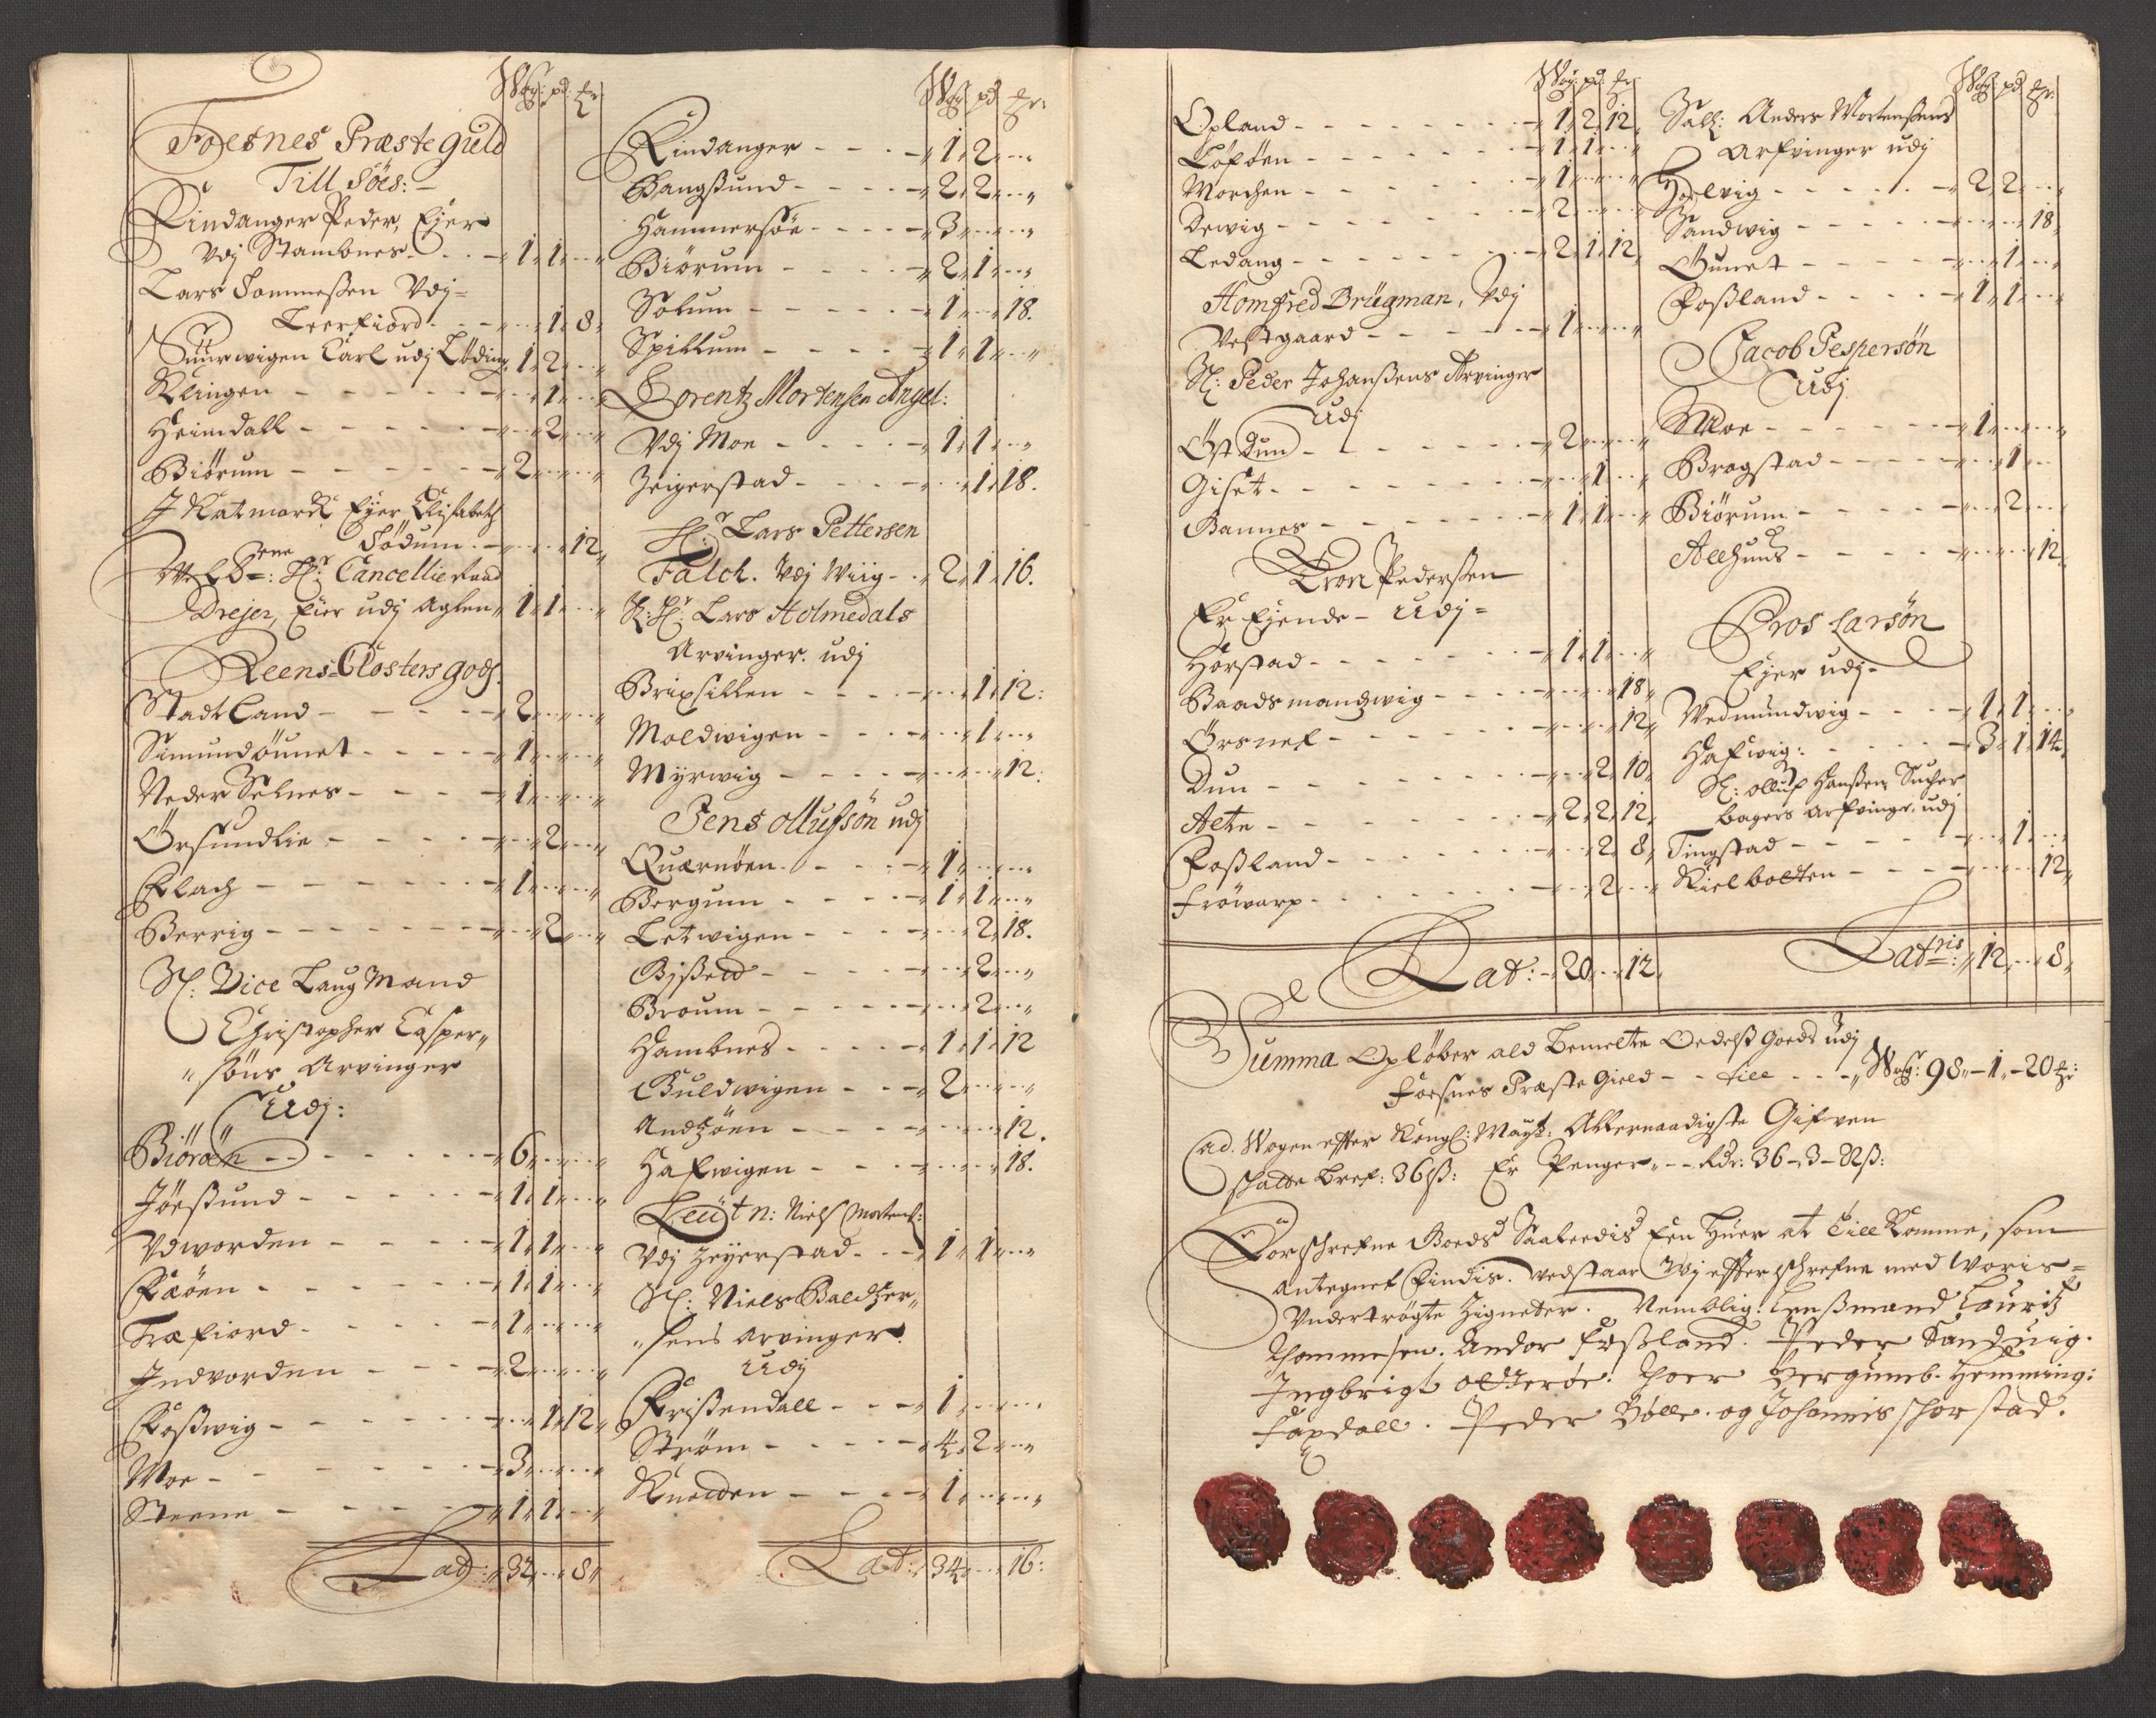 Wog: pd: ℔
Foesnes Præste guld
Till Söes:
Kindanger Peder, Ejer
Vdj Stambnes - 1 1 -
Lars Tommeßen Vdj
Leerfiord - - 1 8
Suurwigen Carl udj Löding 1 2 -
Klingen - - 1 -
Heimdall - - 2 -
Biörum - 2 - -
J Katmarck Ejer Elisabeth
Södum - - - 12
WelBne: Hr: Cancellie Raad
Drejer, Eier udj Aglen 1 1 -
Reens Closters gods
Stadtland - 2 - -
Simundöunet - 1 - -
Neder Selnes - 1 - -
Örsundlie - - 2 -
Elach - 1 - -
Berrig - - 2 -
Sl: Vice Laug Mand
Christopher Casper„
„söns Arvinger
Udj:
Biöröen - 6 - -
Jöessund - 1 1 -
Vdworden - 1 1 -
Faöen - 1 1 -
Træfiord - 1 - -
Indvorden - 2 - -
Foßwig - - 1 12
Moe - 3 - -
Steene - 1 1 -
Lat: 32 - 8
Wog pd ℔:
Kindanger - 1 2 -
Bangßund - 2 2 -
Hammersöe - 3 - -
Biörum - 2 1 -
Solum - 1 - 18.
Spillum - 1 1 -
Lorentz Mortensen Angel:
Vdj Moe - 1 1 -
Zeigerstad - - 1 18.
Hr: Lars Pettersen
Falch. Vdj Wiig - 2 1 16.
S: Hr: Lars Holmedals
Arvinger. udj
Brixsillen - - 1 12:
Moldwigen - - 1 -
Myrwig - - - 12:
Jens ollufsön udj
Quærnöen - 1 - -
Bergum - 1 1 -
Letwigen - - 2 18.
Bißeld - - 2 -
Broum - - 2 -
Hambnes - 1 1 12
Guldwigen - 2 - -
Andzöen - - - 12.
Hafwigen - - - 18.
Leütn: Niels Mortens:
Vdj Zeyerstad - 1 1 -
Sl: Niels Baldtzer„
„sens Arvinger.
Udj
Krißendall - 1 - -
Ström - 4 2 -
Knedden - 1 - -
Lat: 34 - 16:
Wog: pd: ℔
Opland - 1 2 12
Loföen - 1 1 -
Morchen - 1 - -
Dewig - 2 - -
Ledang - 2 1 12
Homfred Brügman, Vdj
Westgaard - 1 - -
Sl: Peder Johanßens Arvinger
Udj
Öst Dun - 2 - -
Giset - - 1 -
Bannes - 1 1 -
Tron Pederßen
Er Ejende - Udj
Horstad - 1 1 -
Baadsmandzwig - - - 18
Örsnes - - - 12
Dun - - 2 10
Aelte - 2 2 12
Foßland - - 2 8
Fröwarp - - 2 -
Lat: 20 - 12
Wog: pd ℔:
Sall: Anders Mortenßens
Arfvinger udj
Holvig - 2 2 -
Sandwig - - - 18
Öunet - - 1 -
Foßland - 1 1 -
Jacob Jespersön
Udj
Moe - 1 - -
Brogstad - - 1 -
Biörum - - 2 -
Aleshuus - - - 12
Pros Larsön
Ejer udj
Wedmundwig - 1 1 -
Hafwig: - 3 1 14
Sl: olluf Hanßen Sucher
bagers Arfvinger, udj
Tingstad - - 1 -
Kielbotten - - - 12
Latris: 12 - 8
Summa Opløber ald bemelte Oedels goeds udj
Foesnes Præste Gield - - till - - Wog: 98 - 1 - 20 ℔:
Cad Wogen efter Kongl: Mayts: Allernaadigste Gifven
schatte bref: 36 ß: Er Penger - - Rdr: 36 - 3 - 22 ß:
Forschrefne Goeds Saaleedis Een Huer at till Komme, som
Antegnet findis. vedstaar Vj efterschrefne med Woris
Vndertrögte Zigneter. Nemblig. Lensmand Lauritz
Thommesen. Andor Foßland. Peder Sanduig.
Ingbrigt Otterøe. Thoer Bergumb. Hemming:
Faxdall. Peder Bölle. og Johannis Horstad.